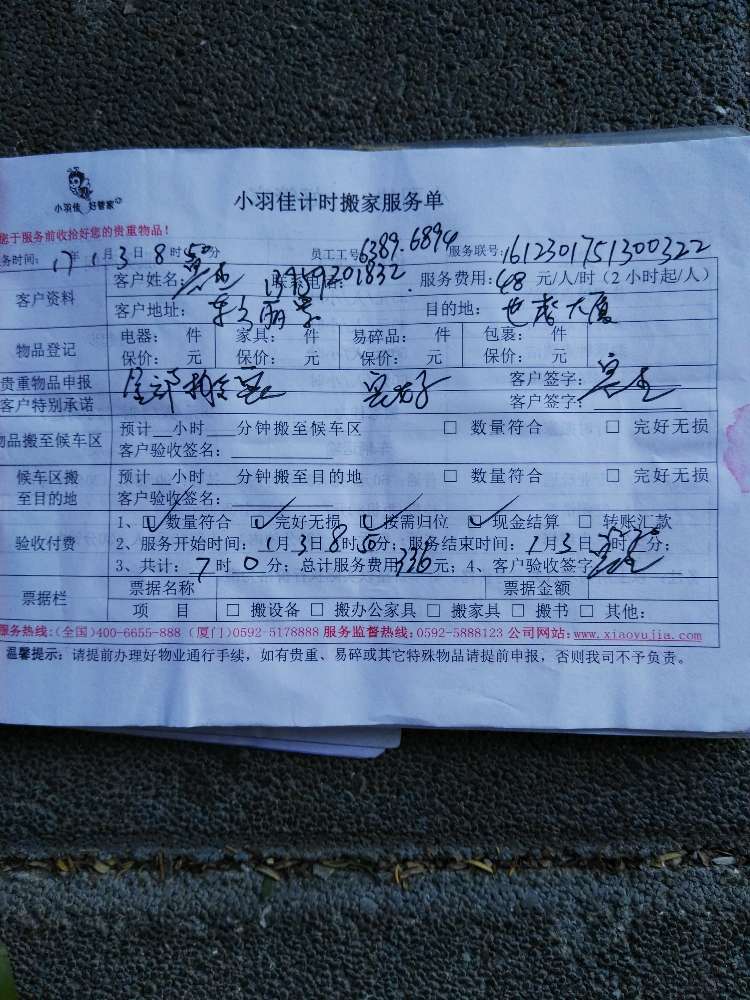 小羽佳 好管家
小羽佳计时搬家服务单
您于服务前收拾好您的贵重物品!
务时间: 17年 1月 3日 8时 50分 员工工号: 6389.6894 服务联号: 1612301751300322
客户资料 客户姓名: 联系电话: 服务费用: 48 元/人/时 (2 小时起/人)
客户地址: 目的地:
物品登记 电器: 件 家具: 件 易碎品: 件 包裹: 件
保价: 元 保价: 元 保价: 元 保价: 元
贵重物品申报 客户签字:
客户特别承诺 客户签字:
物品搬至候车区 预计__小时___分钟搬至候车区 □ 数量符合 □ 完好无损
客户验收签名:
候车区搬至目的地 预计__小时___分钟搬至目的地 □ 数量符合 □ 完好无损
客户验收签名:
验收付费 1、☑ 数量符合 ☑ 完好无损 ☑ 按需归位 ☑ 现金结算 □ 转账汇款
2、服务开始时间: 1月3日8时50分; 服务结束时间: 1月3日 时 分;
3、共计: 7时 0分; 总计服务费用336元; 4、客户验收签字
票据栏 票据名称 票据金额
项 目 □ 搬设备 □ 搬办公家具 □ 搬家具 □ 搬书 □ 其他:
服务热线:(全国)400-6655-888 (厦门)0592-5178888 服务监督热线:0592-5888123 公司网站:www.xiaoyujia.com
温馨提示: 请提前办理好物业通行手续, 如有贵重、易碎或其它特殊物品请提前申报, 否则我司不予负责。